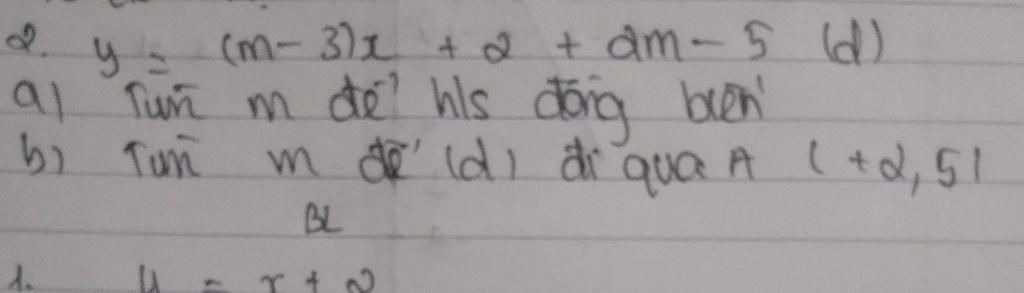 2. y = (m - 3)x + 2 + 2m - 5 (d)
a) Tìm m để h/s đồng biến
b) Tìm m để (d) đi qua A (+2, 5)
BL
1. y = x + 2